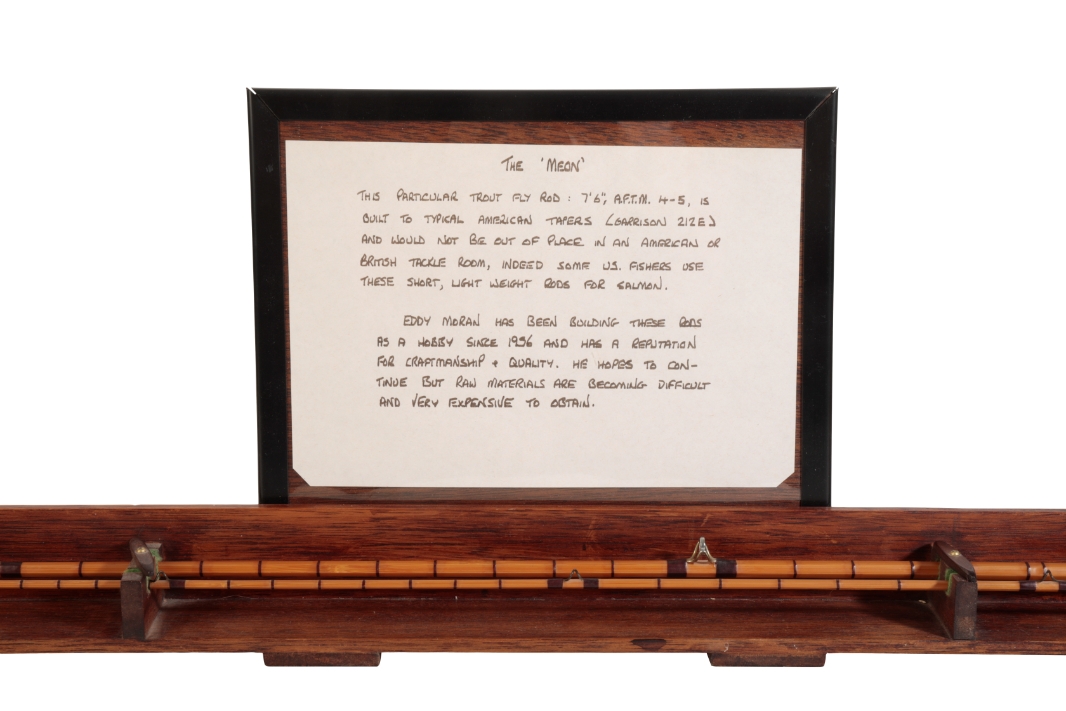 THE 'MEON'
THIS PARTICULAR TROUT FLY ROD : 7'6", A.F.T.M. 4-5, IS
BUILT TO TYPICAL AMERICAN TAPERS (GARRISON 212E)
AND WOULD NOT BE OUT OF PLACE IN AN AMERICAN OR
BRITISH TACKLE ROOM, INDEED SOME U.S. FISHERS USE
THESE SHORT, LIGHT WEIGHT RODS FOR SALMON.
EDDY MORAN HAS BEEN BUILDING THESE RODS
AS A HOBBY SINCE 1956 AND HAS A REPUTATION
FOR CRAFTMANSHIP + QUALITY. HE HOPES TO CON-
TINUE BUT RAW MATERIALS ARE BECOMING DIFFICULT
AND VERY EXPENSIVE TO OBTAIN.